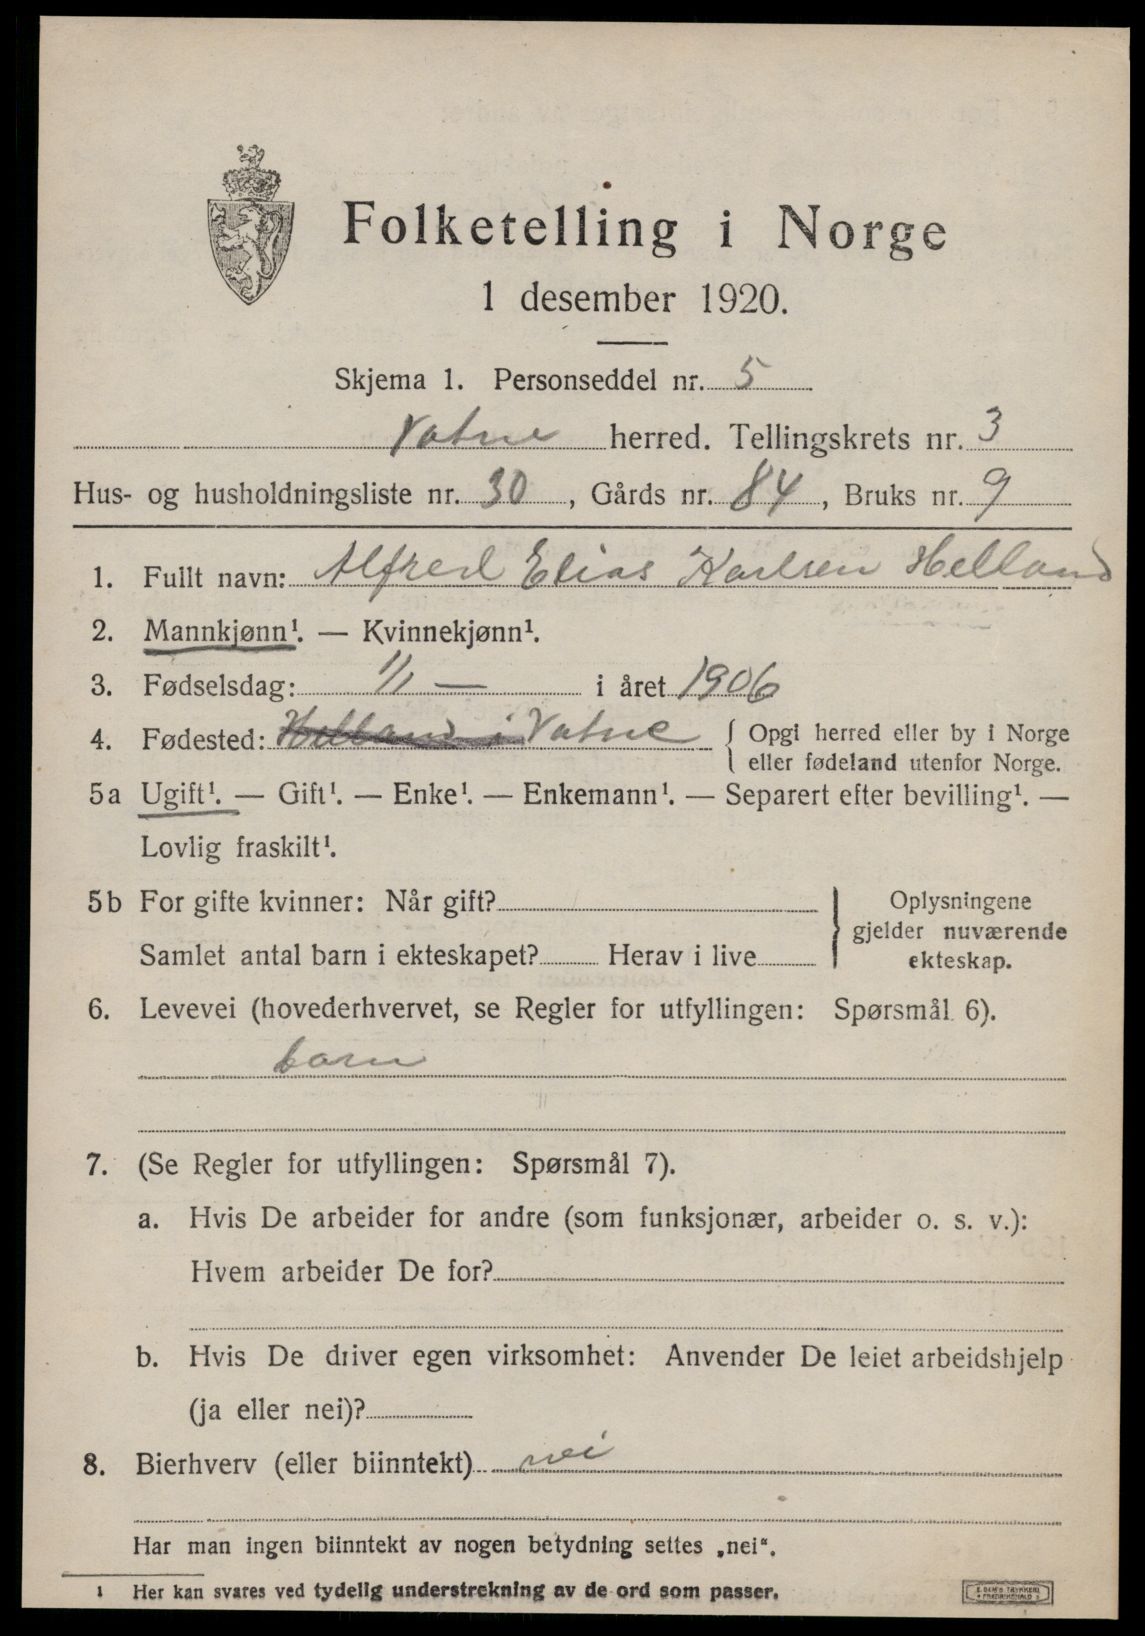 Folketelling i Norge
1 desember 1920.
Skjema 1. Personseddel nr. 5
Vatne herred. Tellingskrets nr. 3
Hus- og husholdningsliste nr. 30, Gårds nr. 84, Bruks nr. 9
1. Fullt navn: Alfred Elias Karlsen Helland
2. Mannkjønn¹. — Kvinnekjønn¹.
3. Fødselsdag: 1/1 — i året 1906
4. Fødested: Helland i Vatne { Opgi herred eller by i Norge
eller fødeland utenfor Norge.
5a Ugift¹. — Gift¹. — Enke¹. — Enkemann¹. — Separert efter bevilling¹. —
Lovlig fraskilt¹.
5b For gifte kvinner: Når gift? } Oplysningene
gjelder nuværende
Samlet antal barn i ekteskapet? Herav i live
ekteskap.
6. Levevei (hovederhvervet, se Regler for utfyllingen: Spørsmål 6).
barn
7. (Se Regler for utfyllingen: Spørsmål 7).
a. Hvis De arbeider for andre (som funksjonær, arbeider o. s. v.):
Hvem arbeider De for?
b. Hvis De driver egen virksomhet: Anvender De leiet arbeidshjelp
(ja eller nei)?
8. Bierhverv (eller biinntekt) nei
Har man ingen biinntekt av nogen betydning settes „nei“.
¹ Her kan svares ved tydelig understrekning av de ord som passer.